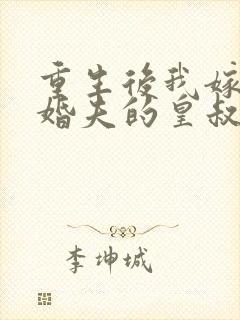 重生後我嫁
婚夫的皇叔
李坤城